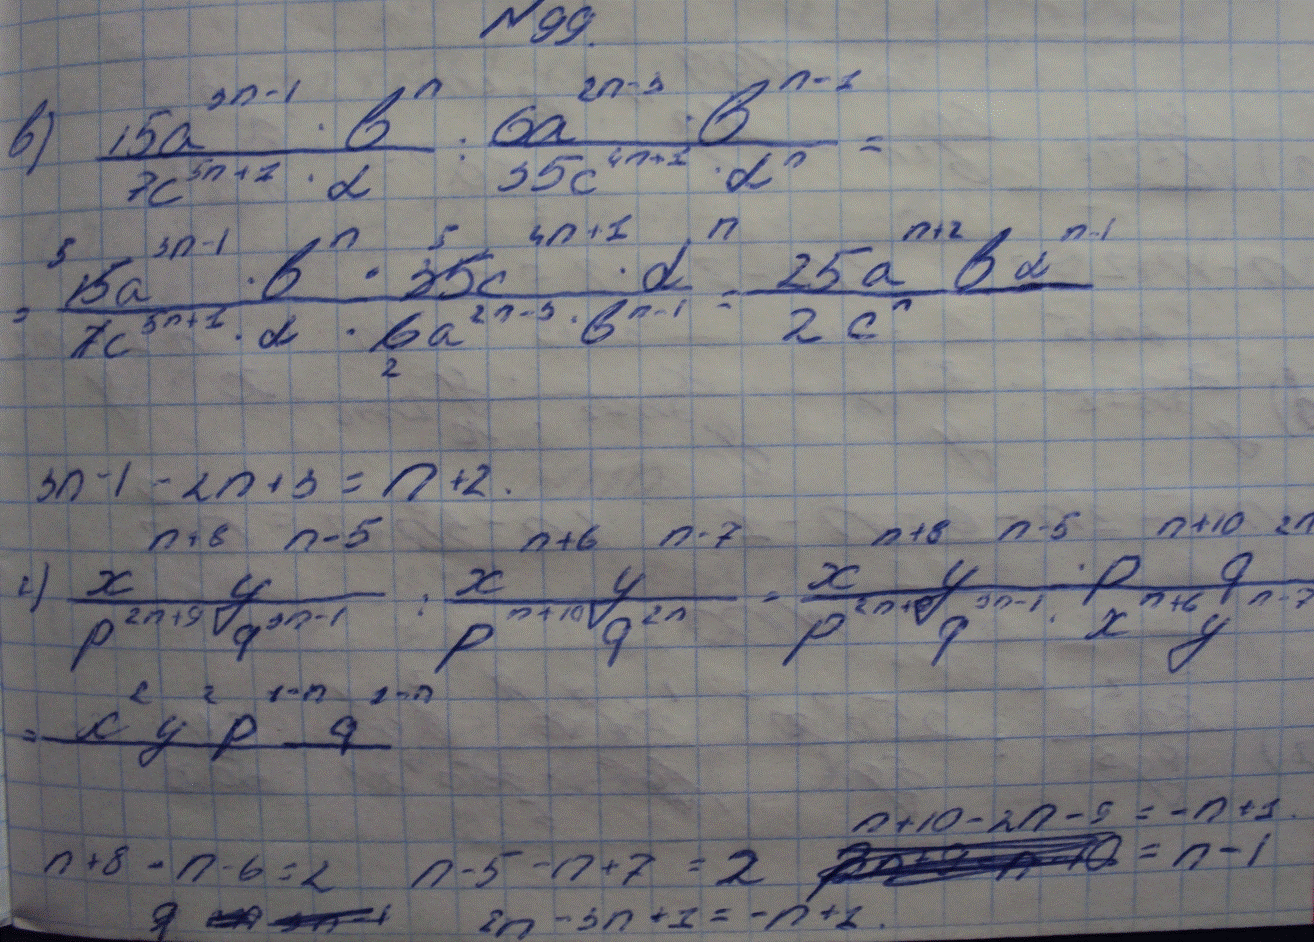 №99.
в) 15a^{3n-1} · b^{n} / 7c^{5n+1} · d : 6a^{2n-3} · b^{n-1} / 35c^{4n+1} · d^{n} =
= 15a^{3n-1} · b^{n} · 35c^{4n+1} · d^{n} / 7c^{5n+1} · d · 6a^{2n-3} · b^{n-1} = 25a^{n+2} b d^{n-1} / 2c^{n}
3n-1-2n+3=n+2.
г) x^{n+8} y^{n-5} / p^{2n+9} q^{3n-1} : x^{n+6} y^{n-7} / p^{n+10} q^{2n} = x^{n+8} y^{n-5} · p^{n+10} q^{2n} / p^{2n+9} q^{3n-1} · x^{n+6} y^{n-7}
= x^{2} y^{2} p^{1-n} q^{1-n}
n+10-2n-9=-n+1.
n+8-n-6=2 n-5-n+7=2 =n-1
q 2n-3n+1=-n+1.